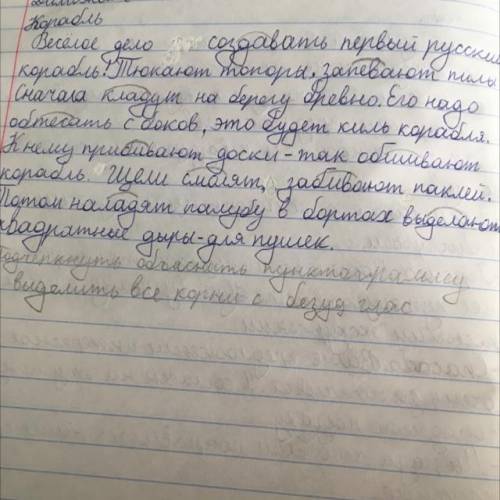 Корабль
Весёлое дело создавать первый русский
корабль! Тюкают топоры. запевают пилы
Сначала кладут на берегу бревно. Его надо
обтесать с боков, это будет киль корабля.
К нему прибивают доски - так обшивают
корабль. Щели смолят, забивают паклей.
Потом наладят палубу в бортах выделают
квадратные дыры - для пушек.
Подчеркнуть объяснить пунктограмму
выделить все корни с безуд глас